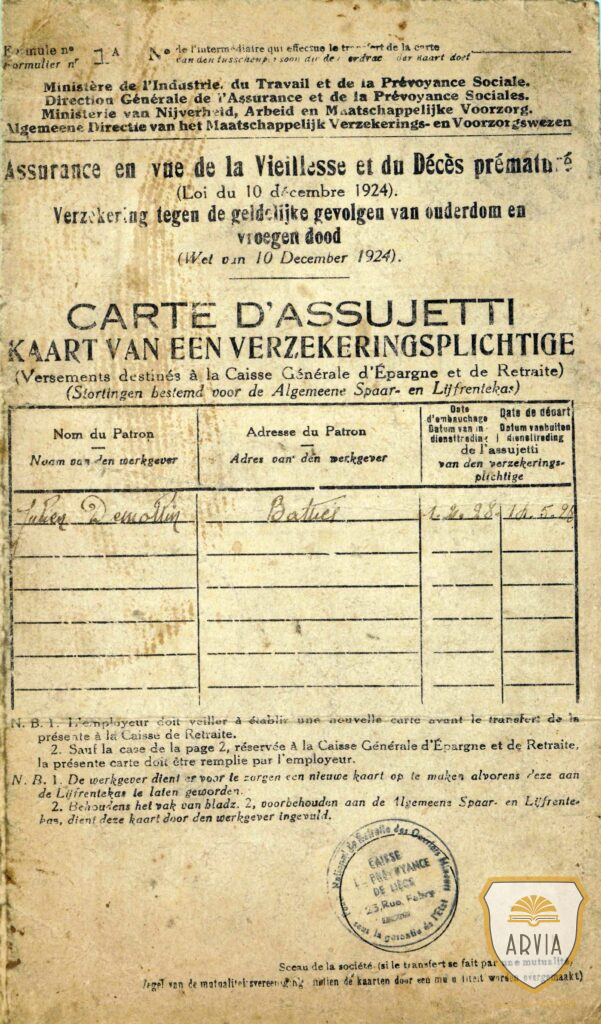 Formule nº 1 A Nº de l'intermédiaire qui effectue le transfert de la carte
Formulier nr
Ministère de l'Industrie, du Travail et de la Prévoyance Sociale.
Direction Générale de l'Assurance et de la Prévoyance Sociales.
Ministerie van Nijverheid, Arbeid en Maatschappelijke Voorzorg.
Algemeene Directie van het Maatschappelijk Verzekerings- en Voorzorgswezen
Assurance en vue de la Vieillesse et du Décès prématuré
(Loi du 10 décembre 1924).
Verzekering tegen de geldelijke gevolgen van ouderdom en
vroegen dood
(Wet van 10 December 1924).
CARTE D'ASSUJETTI
KAART VAN EEN VERZEKERINGSPLICHTIGE
(Versements destinés à la Caisse Générale d'Épargne et de Retraite)
(Stortingen bestemd voor de Algemeene Spaar- en Lijfrentekas)
Nom du Patron
Naam van den werkgever
Adresse du Patron
Adres van den werkgever
Date d'embauchage
Datum van indiensttreding
Date de départ
Datum van buiten
diensttreding
de l'assujetti
van den verzekerings-
plichtige
Julien Demottin
1. 2. 28.
N. B. 1. L'employeur doit veiller à établir une nouvelle carte avant le transfert de la
présente à la Caisse de Retraite.
2. Sauf la case de la page 2, réservée à la Caisse Générale d'Épargne et de Retraite,
la présente carte doit être remplie par l'employeur.
N. B. 1. De werkgever dient er voor te zorgen een nieuwe kaart op te maken alvorens deze aan
de Lijfrentekas te laten geworden.
2. Behoudens het vak van bladz. 2, voorbehouden aan de Algemeene Spaar- en Lijfrente-
kas, dient deze kaart door den werkgever ingevuld.
Fonds National de Retraite des Ouvriers Mineurs
CAISSE
DE PRÉVOYANCE
DE LIÈGE
23, Rue Fabry
sous la garantie de l'État
ARVIA
Sceau de la société (si le transfert se fait par une mutualité)
Zegel van de mutualiteitsvereeniging